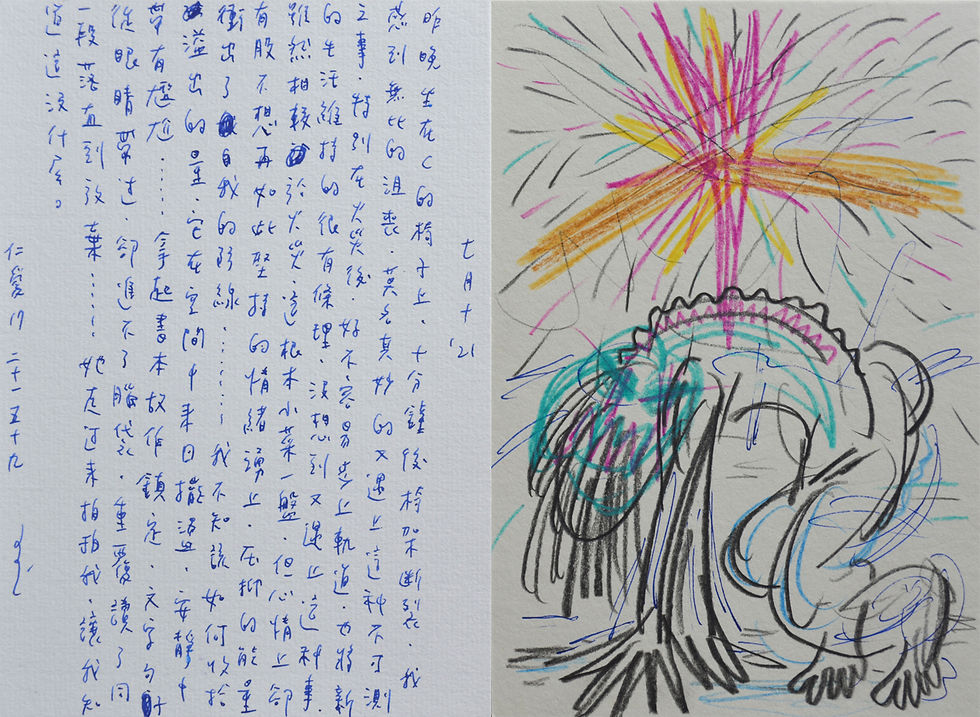 七月十 '21
昨晚坐在C的椅子上,十分鐘後椅架斷裂,我
感到無比的沮喪,莫名其妙的又遇上這種不可測
之事,特別在火災後,好不容易步上軌道,也將新
的生活維持的很有條理,沒想到又遇上這種事,
雖然相較於火災,這根本小菜一盤,但心情上卻
有股不想再如此堅持的情緒湧上,壓抑的能量
衝出了自我的防線……我不知該如何收拾
溢出的量,它在空間中來回擺盪,安靜中
帶有尷尬……拿起書本故作鎮定,文字句
從眼睛穿過,卻進不了腦袋,重覆讀了同
一段落直到放棄……!她走過來拍拍我,讓我知
道這沒什麼。
仁愛17 二十一五十九